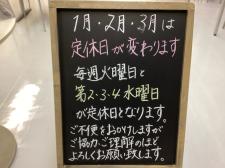 1月・2月・3月は
定休日が変わります
毎週火曜日と
第2・3・4水曜日
が定休日となります。
ご不便をおかけしますが
ご協力、ご理解のほど
よろしくお願い致します。